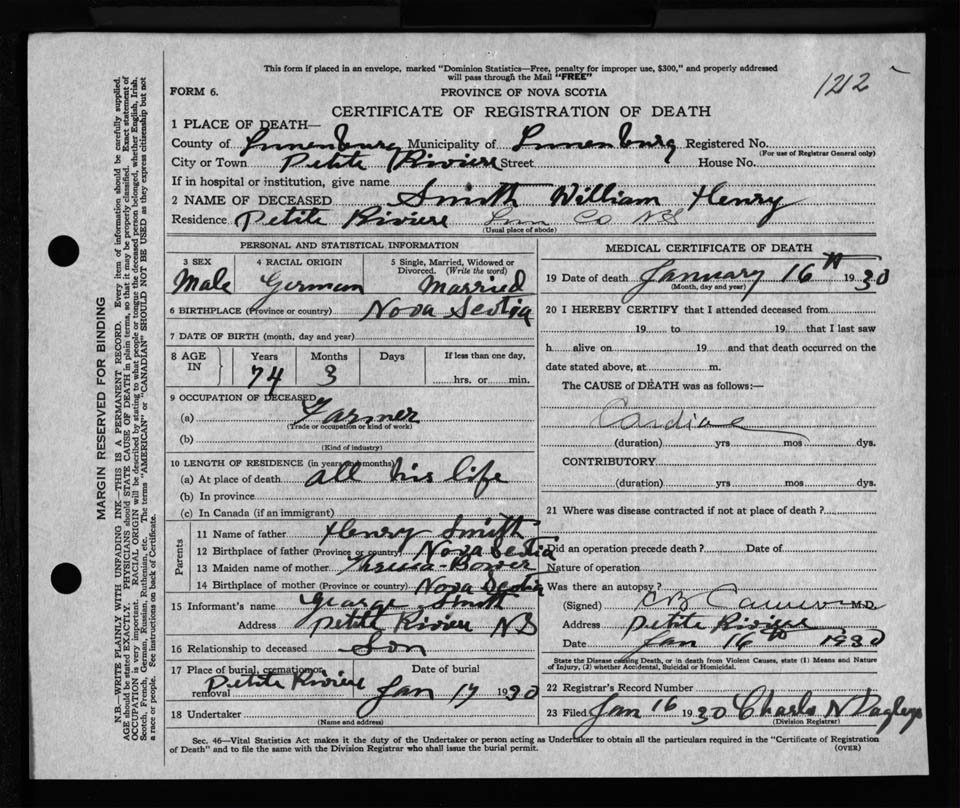 This form if placed in an envelope, marked "Dominion Statistics—Free, penalty for improper use, $300," and properly addressed
will pass through the Mail "FREE"
1212
FORM 6. PROVINCE OF NOVA SCOTIA
CERTIFICATE OF REGISTRATION OF DEATH
1 PLACE OF DEATH—
County of Lunenburg Municipality of Lunenburg Registered No.
(For use of Registrar General only)
City or Town Petite Riviere Street House No.
If in hospital or institution, give name
2 NAME OF DECEASED Smith William Henry
Residence Petite Riviere Lun Co NS
(Usual place of abode)
PERSONAL AND STATISTICAL INFORMATION
3 SEX 4 RACIAL ORIGIN 5 Single, Married, Widowed or
Divorced. (Write the word)
Male German Married
6 BIRTHPLACE (Province or country) Nova Scotia
7 DATE OF BIRTH (month, day and year)
8 AGE IN Years Months Days If less than one day,
74 3 hrs. or min.
9 OCCUPATION OF DECEASED
(a) Farmer
(Trade or occupation or kind of work)
(b)
(Kind of industry)
10 LENGTH OF RESIDENCE (in years and months)
(a) At place of death all his life
(b) In province
(c) In Canada (if an immigrant)
Parents
11 Name of father Henry Smith
12 Birthplace of father (Province or country) Nova Scotia
13 Maiden name of mother Theresa Bower
14 Birthplace of mother (Province or country) Nova Scotia
15 Informant's name George Smith
Address Petite Riviere NS
16 Relationship to deceased Son
17 Place of burial, cremation or Date of burial
removal Petite Riviere Jan 17 1930
18 Undertaker
(Name and address)
MEDICAL CERTIFICATE OF DEATH
19 Date of death January 16th 1930
(Month, day and year)
20 I HEREBY CERTIFY that I attended deceased from
19 to 19 that I last saw
h alive on 19 and that death occurred on the
date stated above, at m.
The CAUSE of DEATH was as follows:—
Cardiac
(duration) yrs mos dys.
CONTRIBUTORY
(duration) yrs mos dys.
21 Where was disease contracted if not at place of death?
Did an operation precede death? Date of
Nature of operation
Was there an autopsy?
(Signed) Cameron M.D.
Address Petite Riviere
Date Jan 16th 1930
State the Disease causing Death, or in death from Violent Causes, state (1) Means and Nature
of Injury, (2) whether Accidental, Suicidal or Homicidal.
22 Registrar's Record Number
23 Filed Jan 16 1930 Charles N
(Division Registrar)
Sec. 46—Vital Statistics Act makes it the duty of the Undertaker or person acting as Undertaker to obtain all the particulars required in the "Certificate of Registration
of Death" and to file the same with the Division Registrar who shall issue the burial permit. (OVER)
MARGIN RESERVED FOR BINDING
N.B.—WRITE PLAINLY WITH UNFADING INK—THIS IS A PERMANENT RECORD. Every item of information should be carefully supplied.
AGE should be stated EXACTLY. PHYSICIANS should STATE CAUSE OF DEATH in plain terms, so that it may be properly classified. Exact statement of
OCCUPATION is very important. RACIAL ORIGIN will be described by stating to what people or tongue the deceased person belonged, whether English, Irish,
Scotch, French, German, Russian, Ruthenian, etc. The terms "AMERICAN" or "CANADIAN" SHOULD NOT BE USED as they express citizenship but not
a race or people. See instructions on back of Certificate.